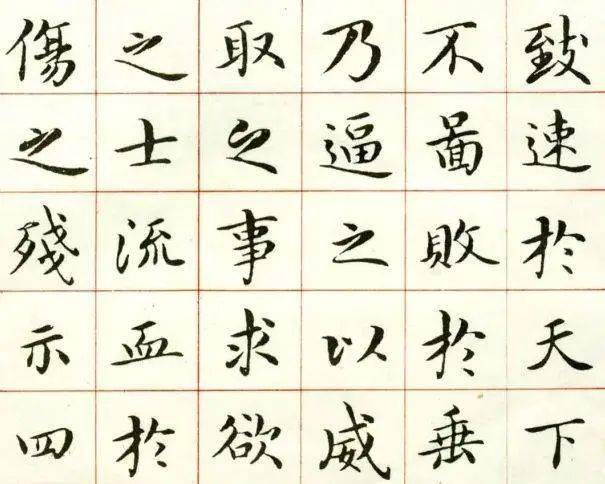 致速於天下
不啚敗於垂
乃逼之以威
取之事求欲
之士流血於
傷之殘示四